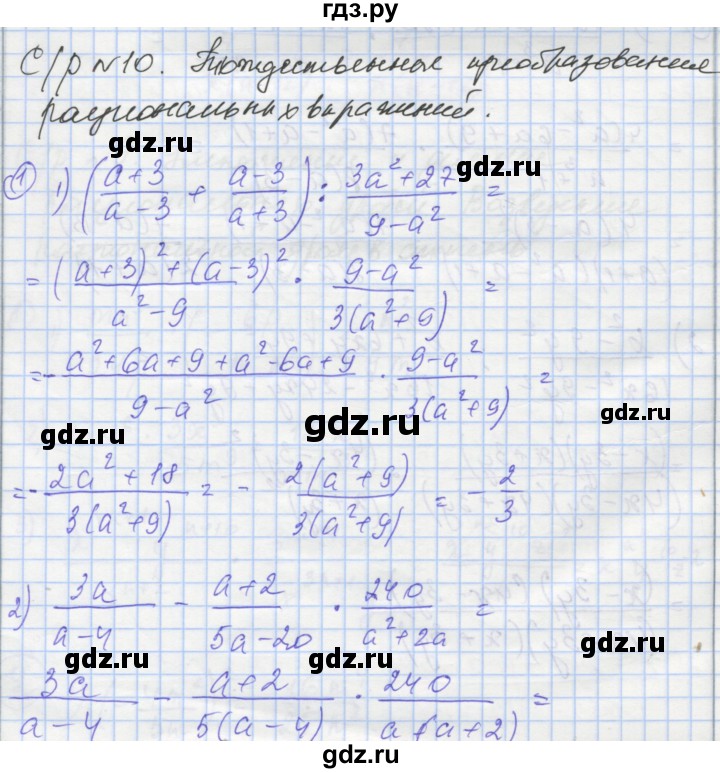 гдз.ру
С/р №10. Тождественные преобразования
рациональных выражений.
gdz.ru gdz.ru
① 1) ((a+3)/(a-3) + (a-3)/(a+3)) : (3a²+27)/(9-a²) =
gdz.ru
= ((a+3)²+(a-3)²)/(a²-9) · (9-a²)/(3(a²+9)) =
gdz.ru gdz.ru
=- (a²+6a+9+a²-6a+9)/(9-a²) · (9-a²)/(3(a²+9)) =
gdz.ru gdz.ru gdz.ru
=- (2a²+18)/(3(a²+9)) = - (2(a²+9))/(3(a²+9)) = - 2/3
gdz.ru gdz.ru
2) 3a/(a-4) - (a+2)/(5a-20) · 240/(a²+2a) =
gdz.ru gdz.ru
3a/(a-4) - (a+2)/(5(a-4)) · 240/(a(a+2)) =
gdz.ru